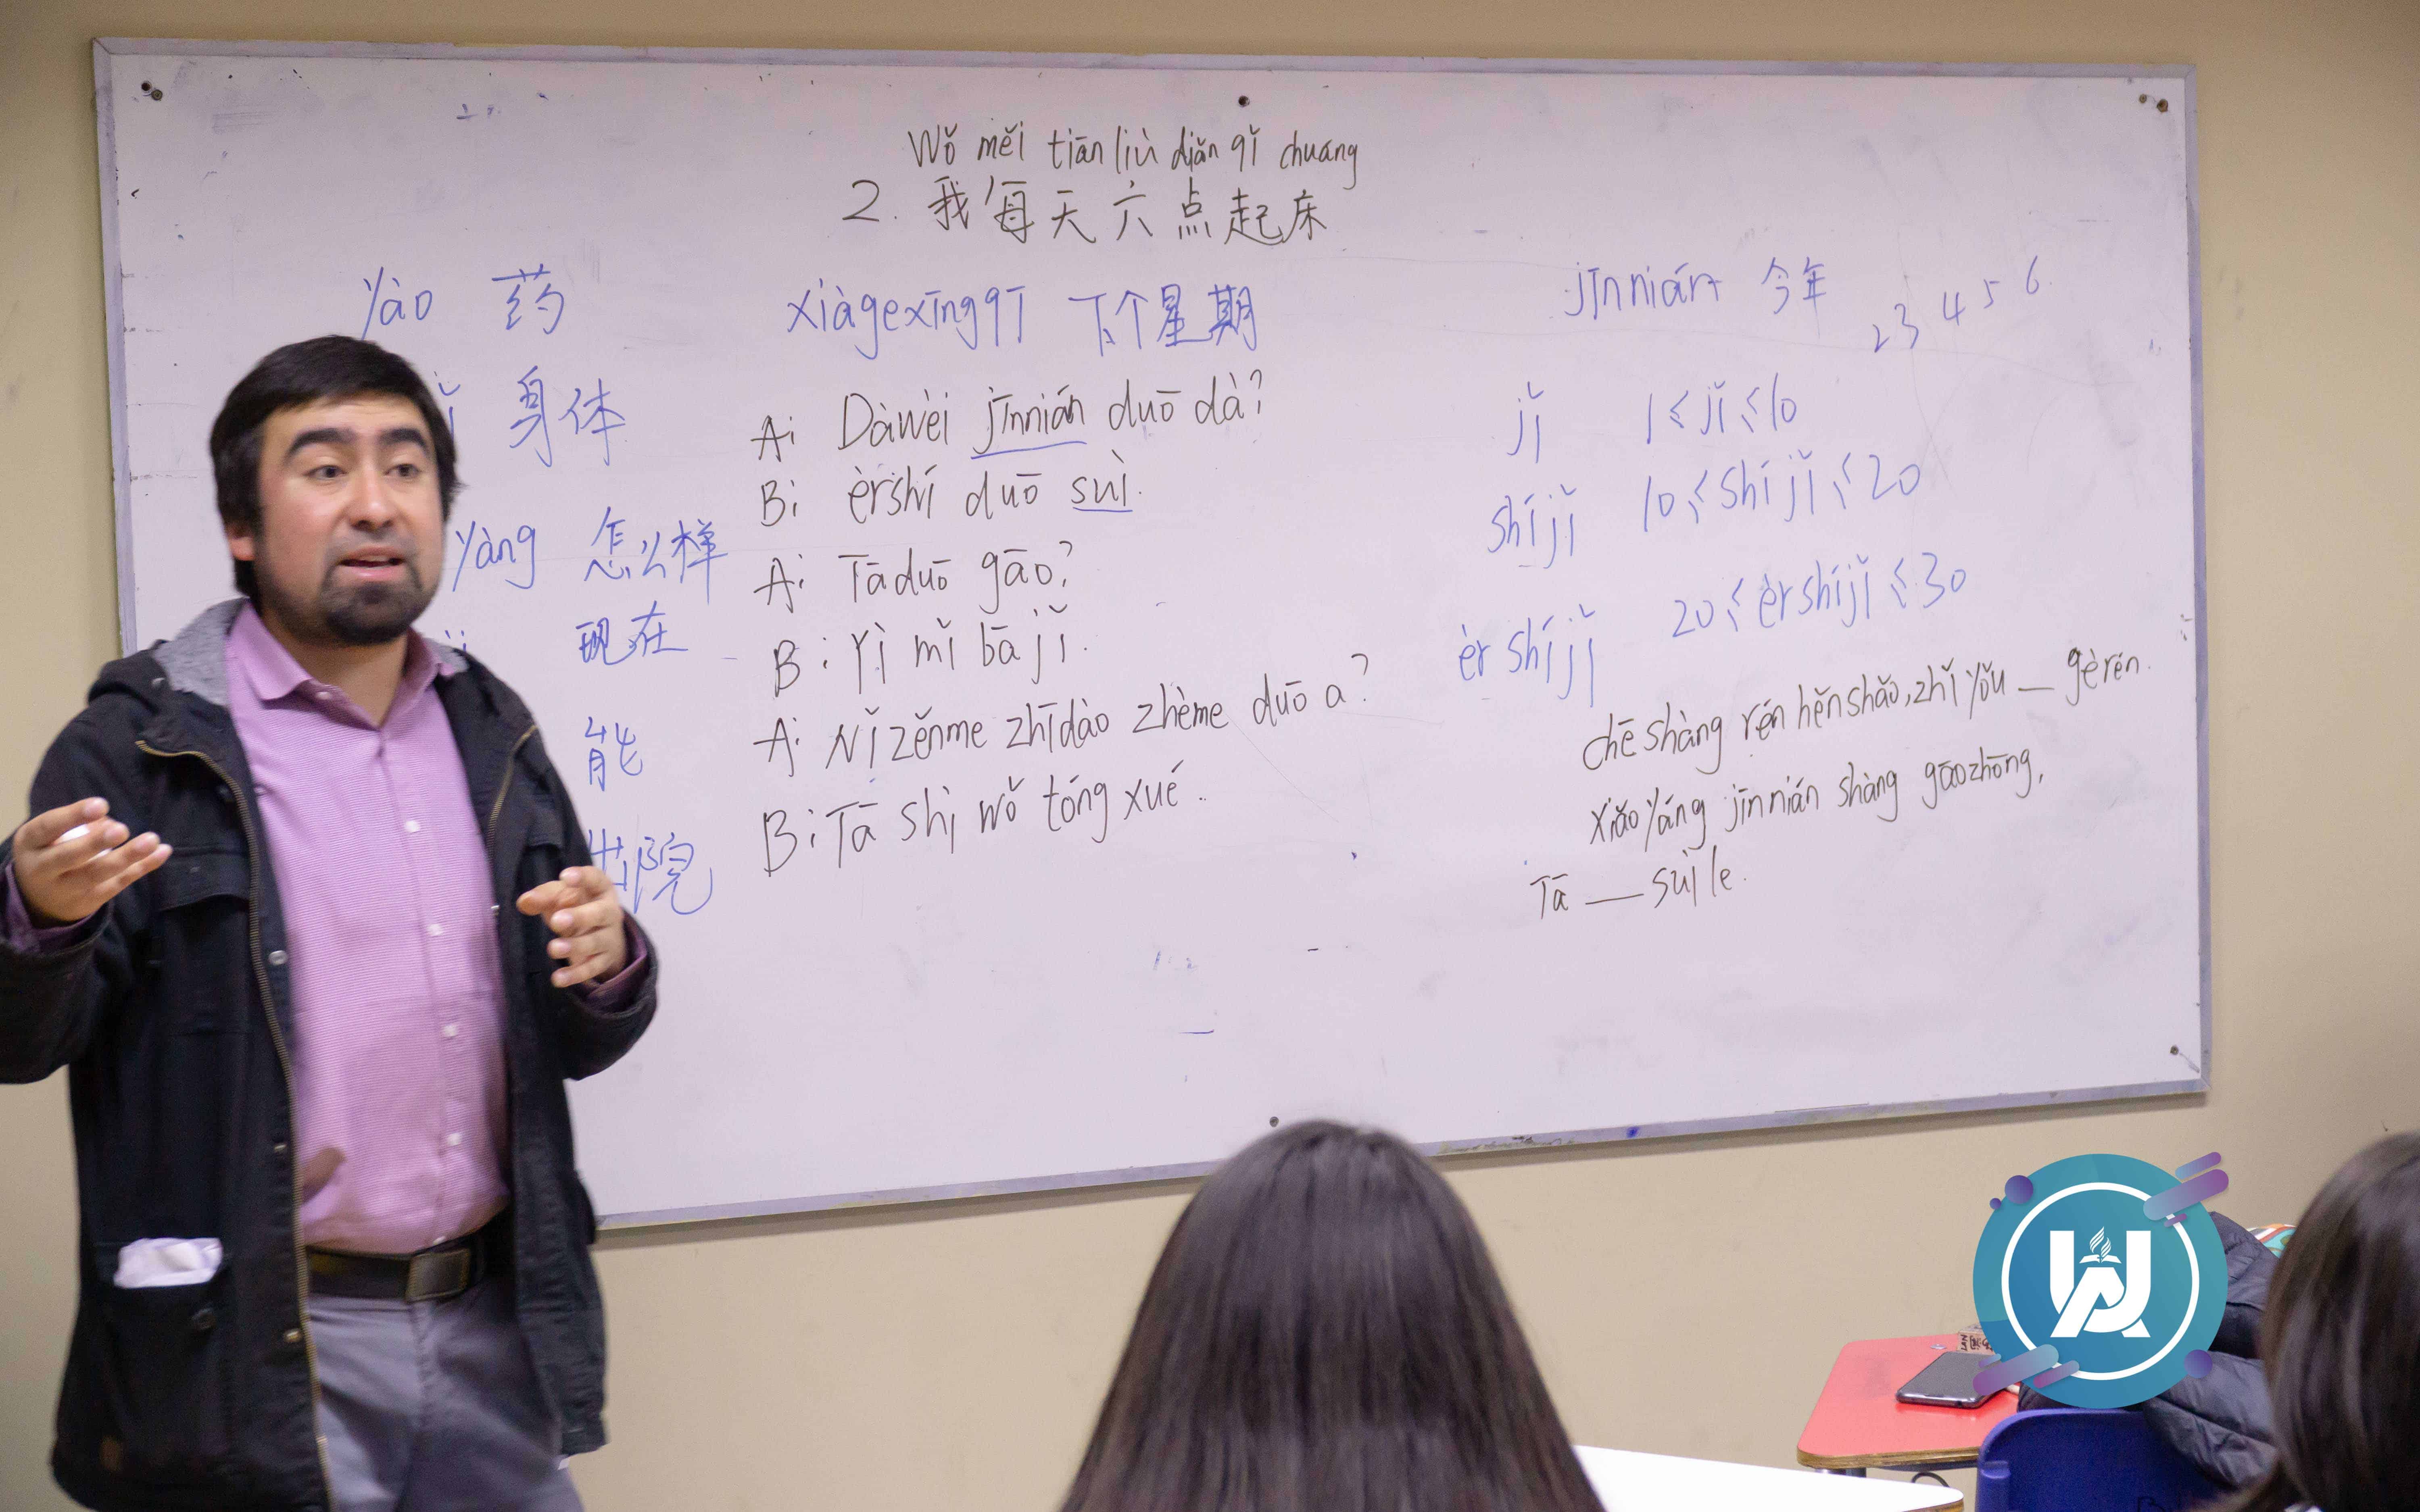 Wǒ měi tiān liù diǎn qǐ chuáng
2. 我每天六点起床
yào 药
身体
yàng 怎么样
现在
能
出院
xiàgexīngqī 下个星期
A: Dàwèi jīnnián duō dà?
B: èrshí duō suì.
A: Tā duō gāo?
B: Yì mǐ bā jǐ.
A: Nǐ zěnme zhīdào zhème duō a?
B: Tā shì wǒ tóng xué.
jīnnián 今年
2 3 4 5 6
jǐ 1≤jǐ≤10
shíjǐ 10≤shíjǐ≤20
èrshíjǐ 20≤èrshíjǐ≤30
chē shàng rén hěn shǎo, zhǐ yǒu — gè rén.
xiǎo yáng jīnnián shàng gāozhōng,
Tā — suì le.